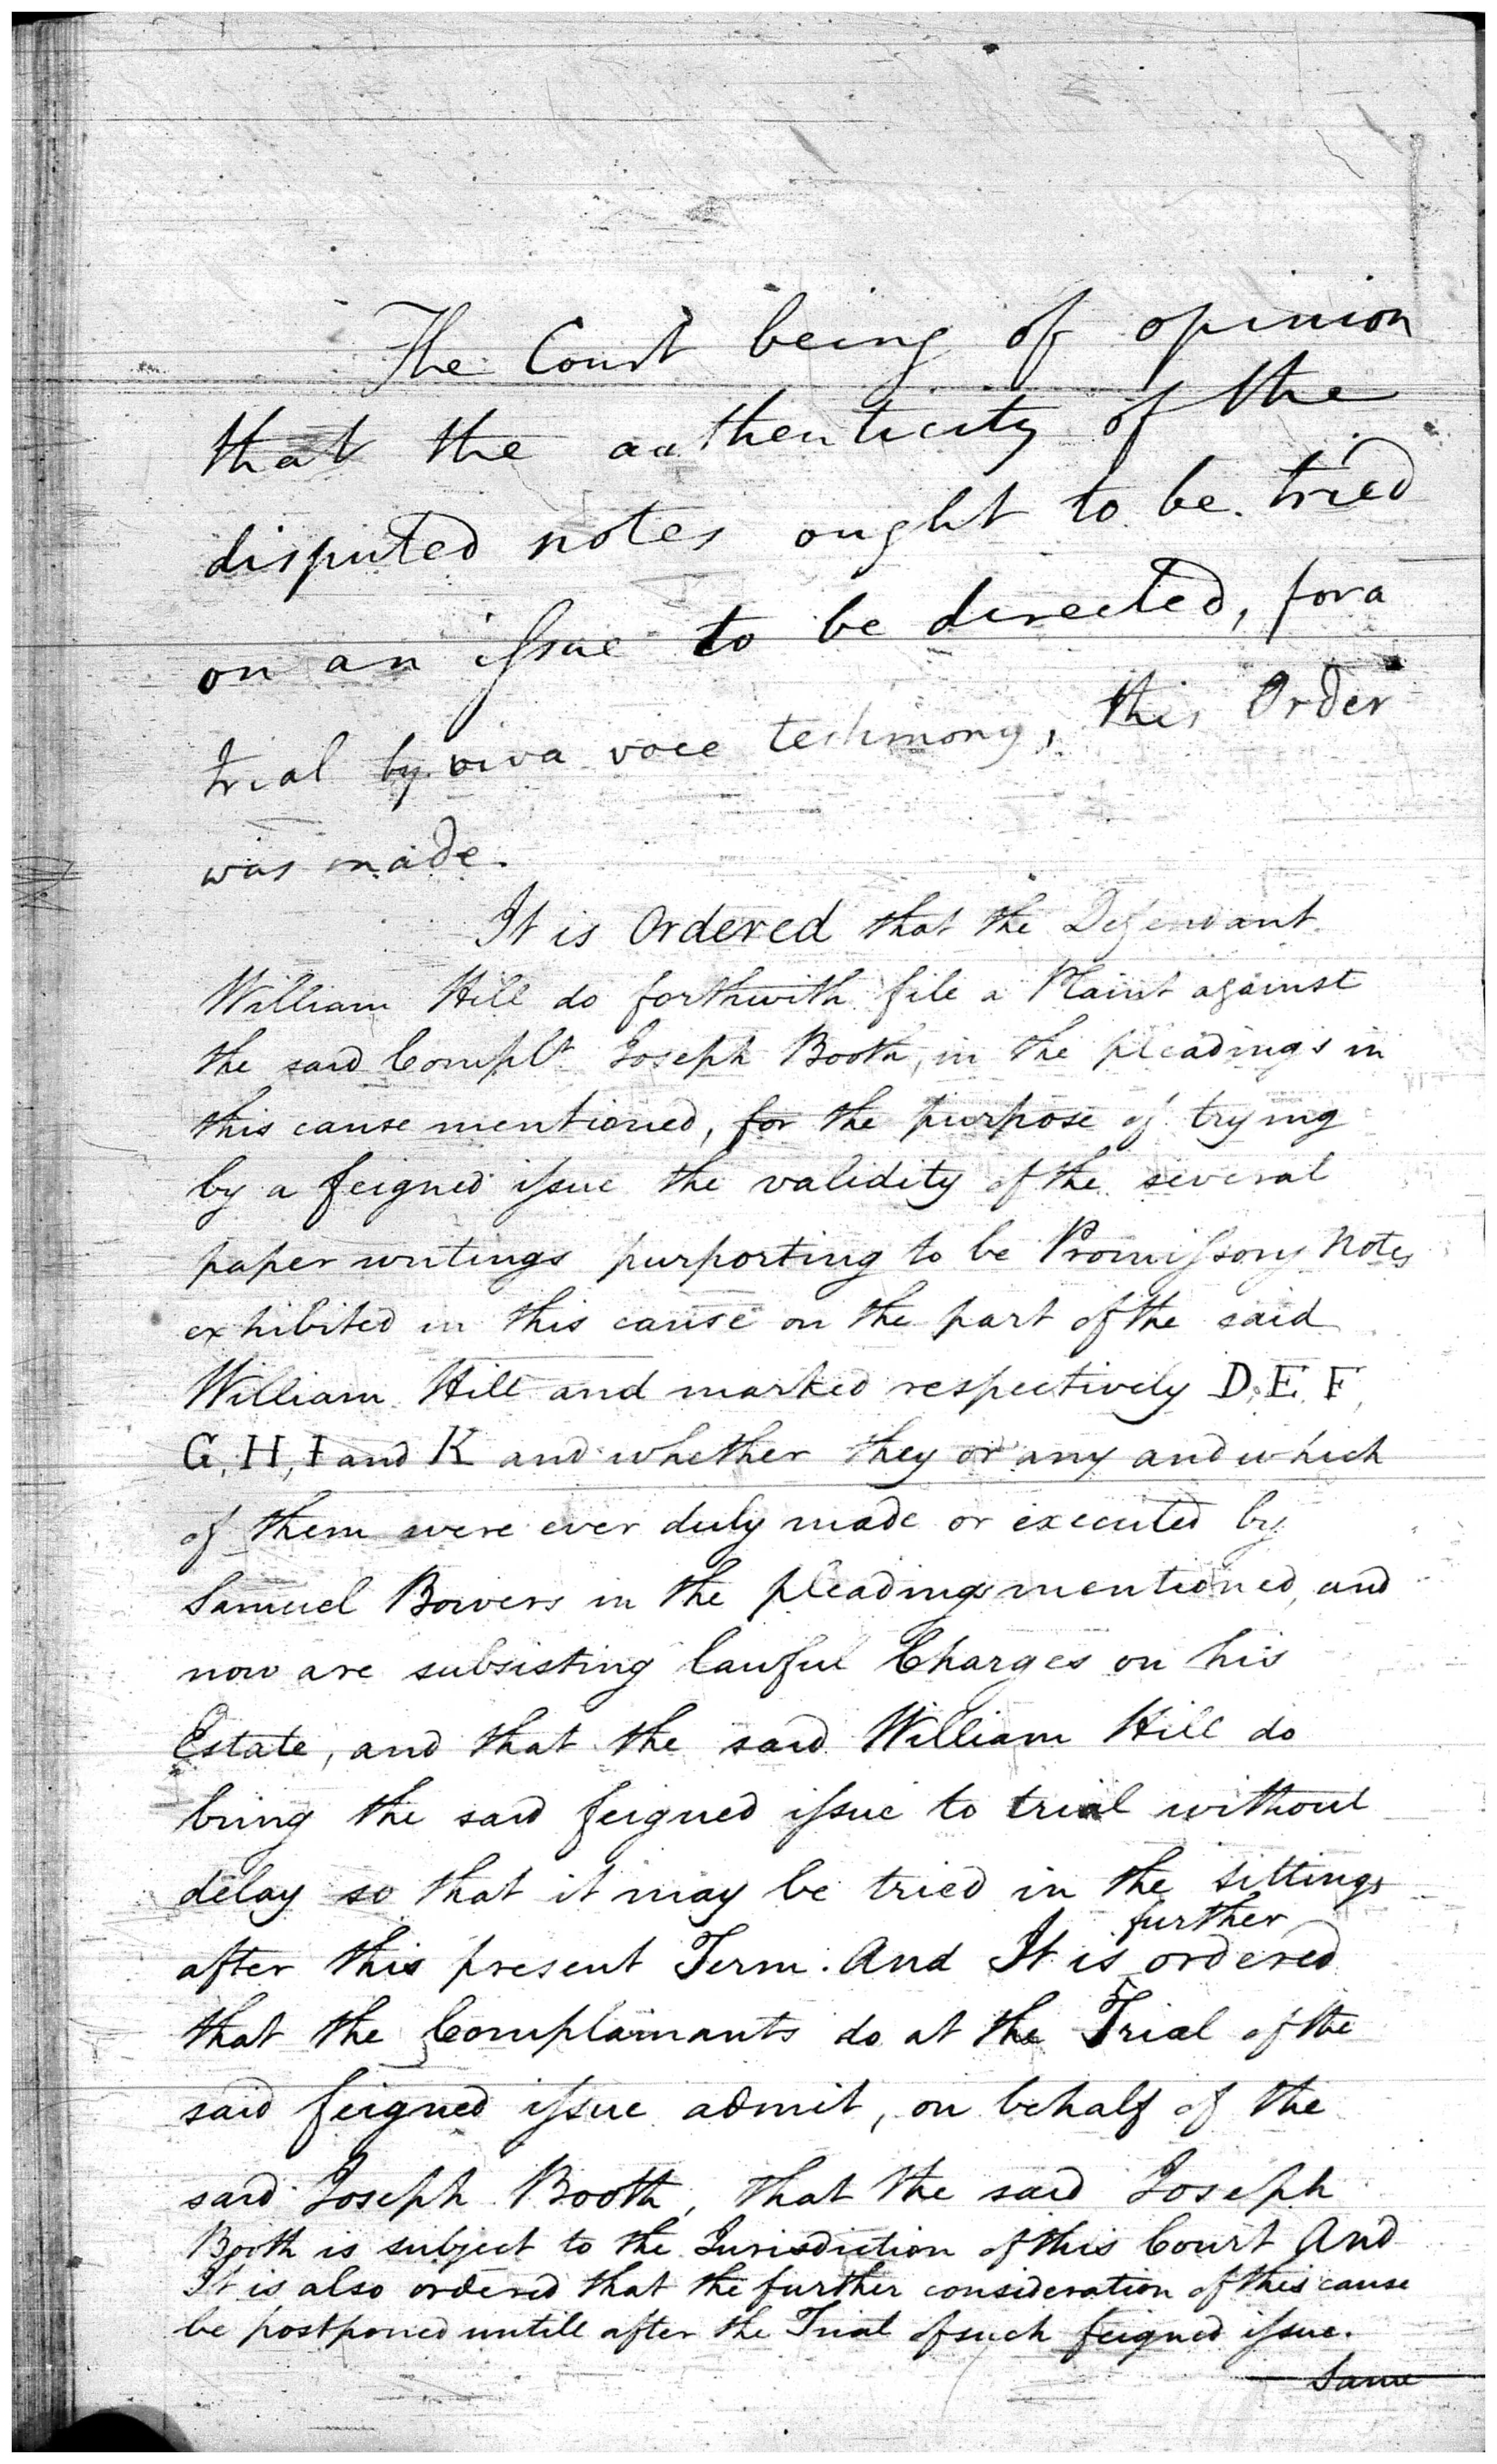 The Court being of opinion
that the authenticity of the
disputed notes ought to be tried
on an issue to be directed, for a
trial by viva voce testimony, this Order
was made.
It is Ordered that the Defendant
William Hill do forthwith file a Plaint against
the said Complt Joseph Booth, in the pleadings in
this cause mentioned, for the purpose of trying
by a feigned issue the validity of the several
paper writings purporting to be Promissory Notes
exhibited in this cause on the part of the said
William Hill and marked respectively D, E, F,
G, H, I and K and whether they or any and which
of them were ever duly made or executed by
Samuel Bowers in the pleadings mentioned, and
now are subsisting lawful Charges on his
Estate, and that the said William Hill do
bring the said feigned issue to trial without
delay so that it may be tried in the sittings
further
after this present Term. And It is ordered
that the Complainants do at the Trial of the
said feigned issue admit, on behalf of the
said Joseph Booth, that the said Joseph
Booth is subject to the Jurisdiction of this Court And
It is also ordered that the further consideration of this cause
be postponed untill after the Trial of such feigned issue.
Same